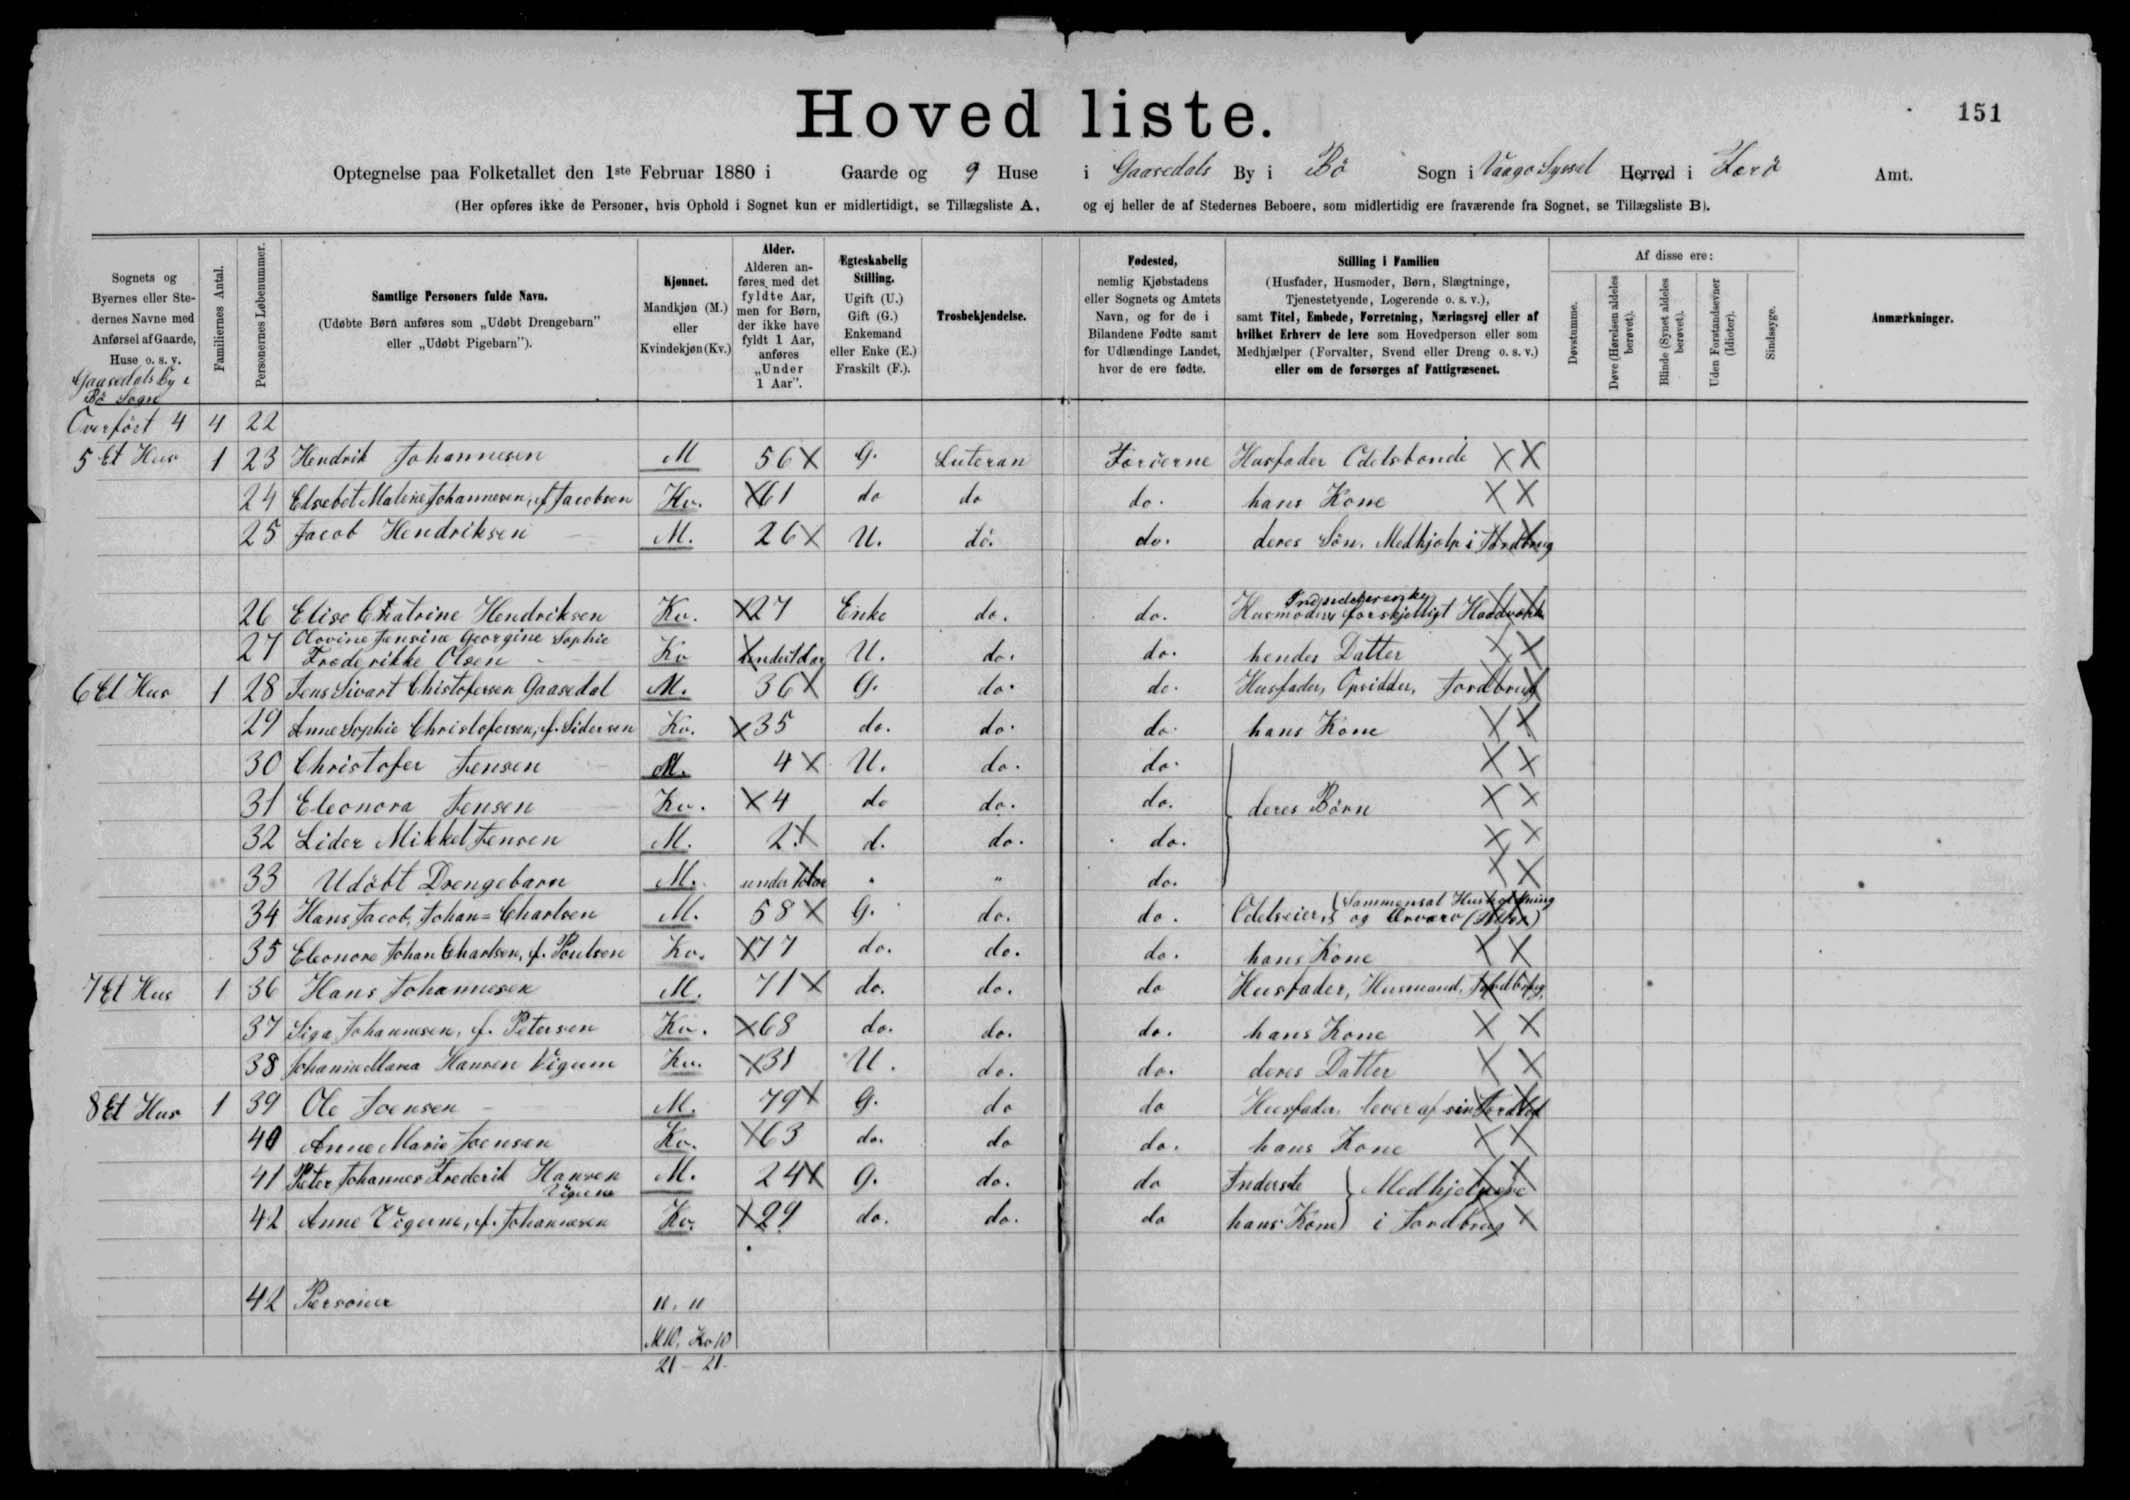 151
Hoved liste.
Optegnelse paa Folketallet den 1ste Februar 1880 i Gaarde og 9 Huse i Gaasedals By i Bö Sogn i Vaagö Syssel Herred i Færö Amt.
(Her opføres ikke de Personer, hvis Ophold i Sognet kun er midlertidigt, se Tillægsliste A, og ej heller de af Stedernes Beboere, som midlertidig ere fraværende fra Sognet, se Tillægsliste B).
Sognets og Byernes eller Stedernes Navne med Anførsel af Gaarde, Huse o. s. v.
Familiernes Antal.
Personernes Løbenummer.
Samtlige Personers fulde Navn.
(Udøbte Børn anføres som „Udøbt Drengebarn" eller „Udøbt Pigebarn").
Kjønnet.
Mandkjøn (M.) eller Kvindekjøn (Kv.)
Alder.
Alderen anføres med det fyldte Aar, men for Børn, der ikke have fyldt 1 Aar, anføres „Under 1 Aar".
Ægteskabelig Stilling.
Ugift (U.) Gift (G.) Enkemand eller Enke (E.) Fraskilt (F.).
Trosbekjendelse.
Fødested,
nemlig Kjøbstadens eller Sognets og Amtets Navn, og for de i Bilandene Fødte samt for Udlændinge Landet, hvor de ere fødte.
Stilling i Familien
(Husfader, Husmoder, Børn, Slægtninge, Tjenestetyende, Logerende o. s. v.), samt Titel, Embede, Forretning, Næringsvej eller af hvilket Erhverv de leve som Hovedperson eller som Medhjælper (Forvalter, Svend eller Dreng o. s. v.) eller om de forsørges af Fattigvæsenet.
Af disse ere:
Døvstumme.
Døve (Hørelsen aldeles berøvet).
Blinde (Synet aldeles berøvet).
Uden Forstandsevner (Idioter).
Sindssyge.
Anmærkninger.
Gaasedals By i
Bö Sogn
Overfört 4 4 22
5 Et Hus 1 23 Hendrik Johannesen M 56 X G. Luteran Færöerne Husfader Odelsbonde X X
24 Elsebet Malene Johannesen, f. Jacobsen Kv. X 61 do do do. hans Kone X X
25 Jacob Hendriksen M. 26 X U. do. do. deres Sön. Medhjelp i Jordbrug
26 Elise Chatrine Hendriksen Kv. X 27 Enke do. do. Husmoder, forskjelligt
27 Jensine Georgine Sophie
Frederikke Olsen Kv under 1 Aar U. do. do. hendes Datter X X
6 Et Hus 1 28 Jens Sivart Chistofersen Gaasedal M. 36 X G. do. do. Husfader, Opsidder, Jordbrug
29 Anne Sophie Christofersen, f. Sidersen Kv. X 35 do. do. do. hans Kone X X
30 Christofer Jensen M. 4 X U. do. do. X X
31 Eleonora Jensen Kv. X 4 do do. do. deres Börn X X
32 Lider Mikkel Jensen M. 2 X d. do. do. X X
33 Udöbt Drengebarn M. under 1 Aar " " do. X X
34 Hans Jacob, Johan=Charlsen M. 58 X G. do. do. Odelseier, Sammensat Husholdning
og
35 Eleonore Johan Charlsen, f. Poulsen Kv. X 77 do. do. do. hans Kone X X
7 Et Hus 1 36 Hans Johannesen M. 71 X do. do. do Husfader, Husmand, Jordbrug,
37 Siga Johannesen, f. Petersen Kv. X 68 do. do. do. hans Kone X X
38 Johanne Maria Hansen Vigum Kv. X 31 U. do. do. deres Datter X X
8 Et Hus 1 39 Ole Joensen M. 79 X G. do do Husfader. lever af sin Jordlod
40 Anne Marie Joensen Kv. X 63 do. do do. hans Kone X X
41 Peter Johannes Frederik Hansen
Vigerne M. 24 X G. do. do Inderste Medhjelpere
42 Anne Vigerne, f. Johannesen Kv. X 29 do. do. do hans Kone i Jordbrug X
42 Personer 11. 11
M 10, Kv 10
21 - 21